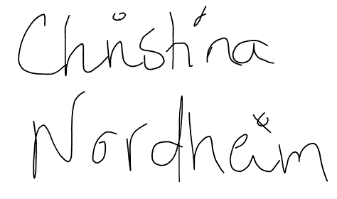 Christina
Nordheim